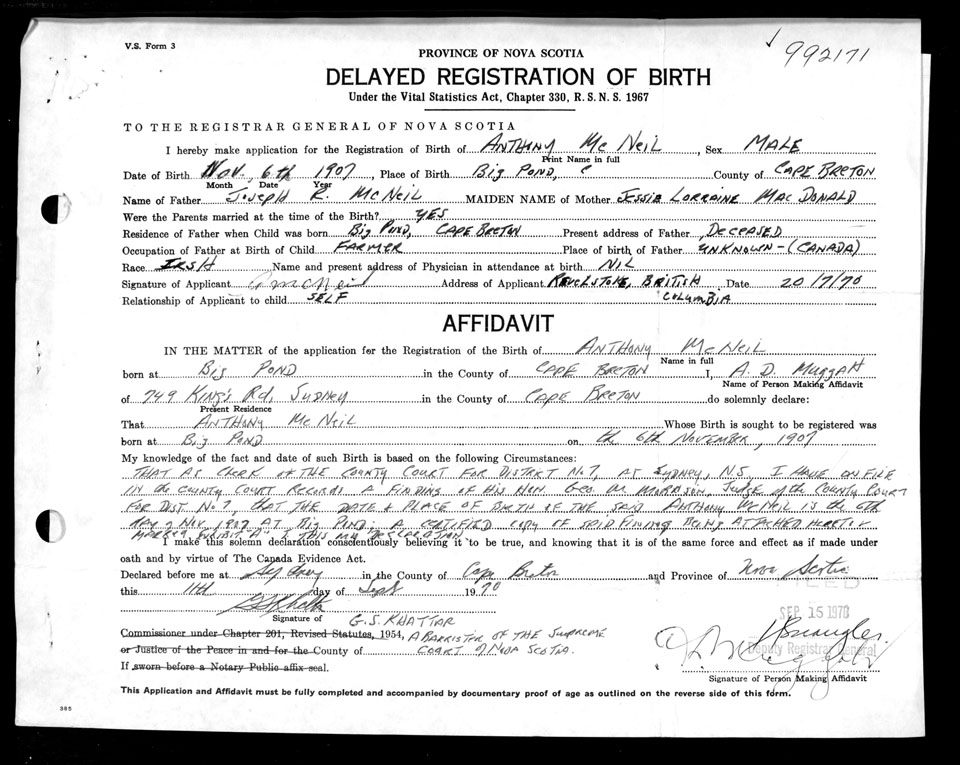 V.S. Form 3
992171
PROVINCE OF NOVA SCOTIA
DELAYED REGISTRATION OF BIRTH
Under the Vital Statistics Act, Chapter 330, R.S.N.S. 1967
TO THE REGISTRAR GENERAL OF NOVA SCOTIA
I hereby make application for the Registration of Birth of ANTHONY Mc NEIL, Sex MALE
Print Name in full
Date of Birth Nov. 6th 1907, Place of Birth BIG POND, County of CAPE BRETON
Month Date Year
Name of Father Joseph R. McNEIL MAIDEN NAME of Mother JESSIE LORRAINE MAC DONALD
Were the Parents married at the time of the Birth? YES
Residence of Father when Child was born BIG POND, CAPE BRETON Present address of Father DECEASED
Occupation of Father at Birth of Child FARMER Place of birth of Father UNKNOWN-(CANADA)
Race IRSH Name and present address of Physician in attendance at birth NIL
Signature of Applicant McNeil Address of Applicant REVELSTOKE, BRITISH Date 20/7/70
COLUMBIA
Relationship of Applicant to child SELF
AFFIDAVIT
IN THE MATTER of the application for the Registration of the Birth of ANTHONY McNEIL
Name in full
born at BIG POND in the County of CAPE BRETON I, A. D. MUGGAH
Name of Person Making Affidavit
of 749 KING'S Rd, SYDNEY in the County of CAPE BRETON do solemnly declare:
Present Residence
That ANTHONY Mc NEIL Whose Birth is sought to be registered was
born at BIG POND on the 6th NOVEMBER, 1907
My knowledge of the fact and date of such Birth is based on the following Circumstances:
THAT AS CLERK of THE COUNTY COURT FOR DISTRICT No. 7, AT SYDNEY, N.S. I HAVE ON FILE
IN the COUNTY COURT RECORDS A FINDING OF HIS HON. GEO. M. MORRISON, JUDGE of the COUNTY COURT
FOR DIST. No 7, THAT THE DATE & PLACE OF BIRTH OF THE SAID ANTHONY McNEIL IS the 6th
DAY of NOV. 1907 AT BIG POND; A CERTIFIED COPY OF SAID FINDING BEING ATTACHED HERETO &
MARKED EXHIBIT "A" TO THIS MY DECLARATION
I make this solemn declaration conscientiously believing it to be true, and knowing that it is of the same force and effect as if made under
oath and by virtue of The Canada Evidence Act.
Declared before me at Sydney in the County of Cape Breton and Province of Nova Scotia
this 11th day of Sept 1970
SEP 15 1970
Signature of G.S. KHATTAR
Commissioner under Chapter 201, Revised Statutes, 1954, A BARRISTER OF THE SUPREME
or Justice of the Peace in and for the County of COURT of NOVA SCOTIA.
Deputy Registrar General
If sworn before a Notary Public affix seal.
Signature of Person Making Affidavit
This Application and Affidavit must be fully completed and accompanied by documentary proof of age as outlined on the reverse side of this form.
385